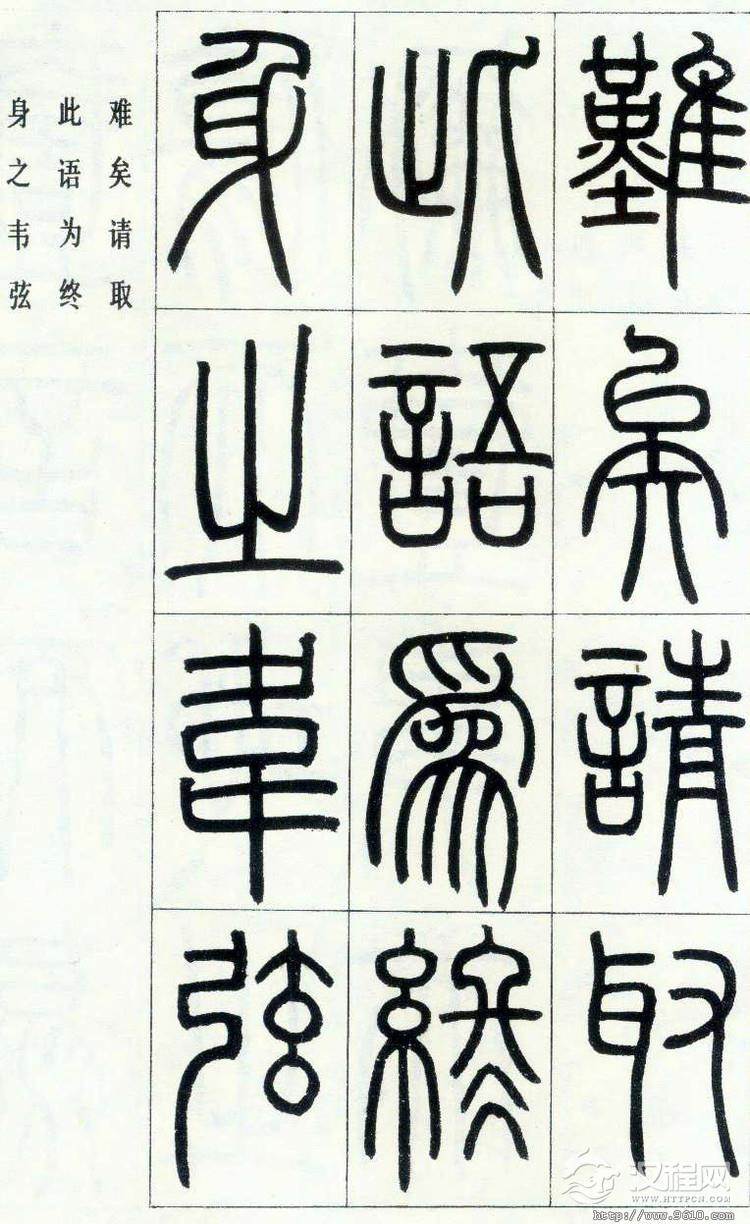 難矣請取
此語爲終
身之韋弦
难矣请取
此语为终
身之韦弦
汉程网
WWW.HTTPCN.COM
http://www.9610.com